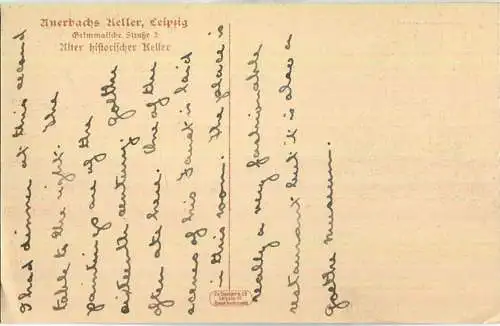 Auerbachs Keller, Leipzig
Grimmaische Straße 2
Alter historischer Keller
I had dinner at this second
table to the right. The
paintings are of the
sixteenth century. Goethe
often ate here. One of the
scenes of his Faust is laid
in this room. The place is
really a very fashionable
restaurant but it is also a
Goethe museum.